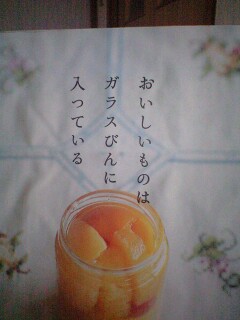 おいしいものは
ガラスびんに
入っている